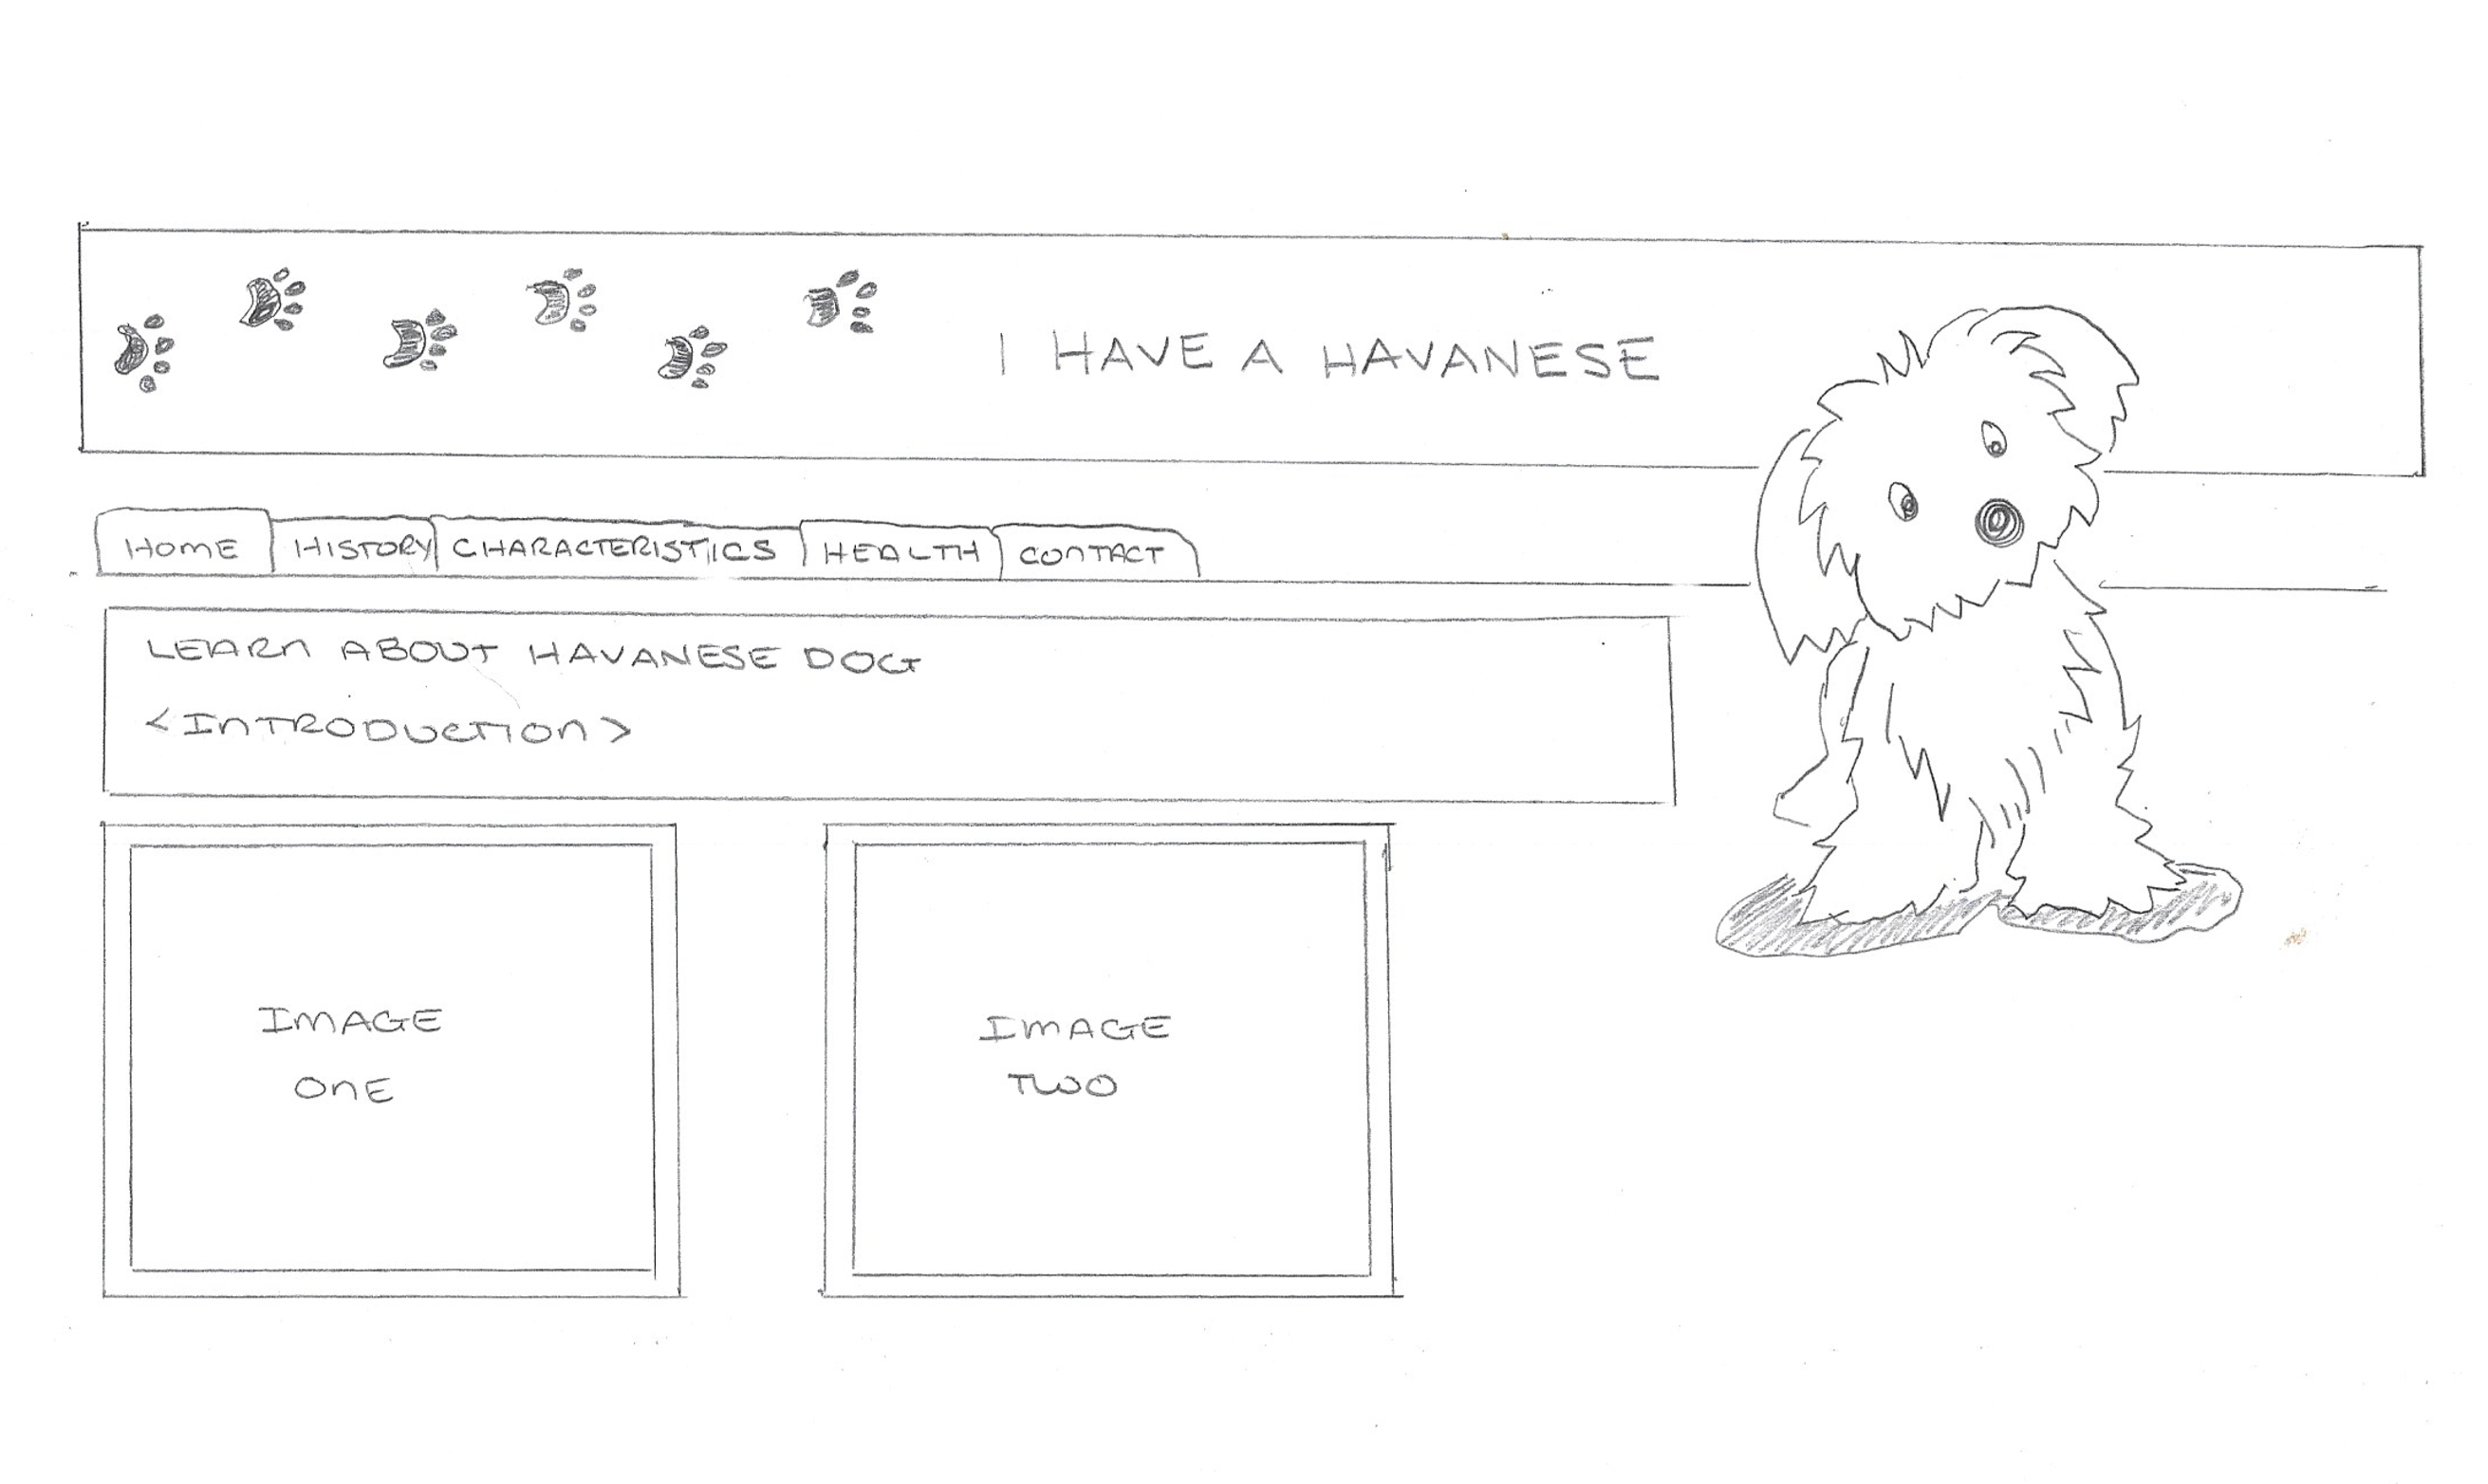 I HAVE A HAVANESE
HOME HISTORY CHARACTERISTICS HEALTH CONTACT
LEARN ABOUT HAVANESE DOG
<INTRODUCTION>
IMAGE
ONE
IMAGE
TWO